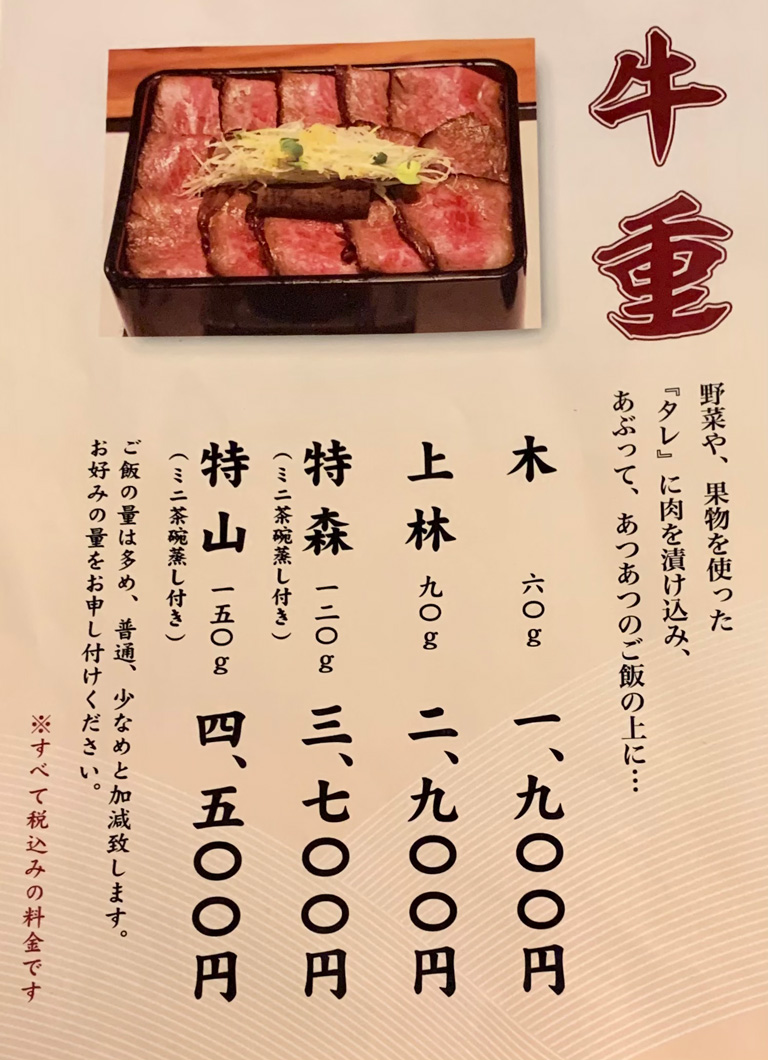 牛重
野菜や、果物を使った
『タレ』に肉を漬け込み、
あぶって、あつあつのご飯の上に…
木 六〇g 一、九〇〇円
上林 九〇g 二、九〇〇円
特森 一二〇g 三、七〇〇円
（ミニ茶碗蒸し付き）
特山 一五〇g 四、五〇〇円
（ミニ茶碗蒸し付き）
ご飯の量は多め、普通、少なめと加減致します。
お好みの量をお申し付けください。
※すべて税込みの料金です